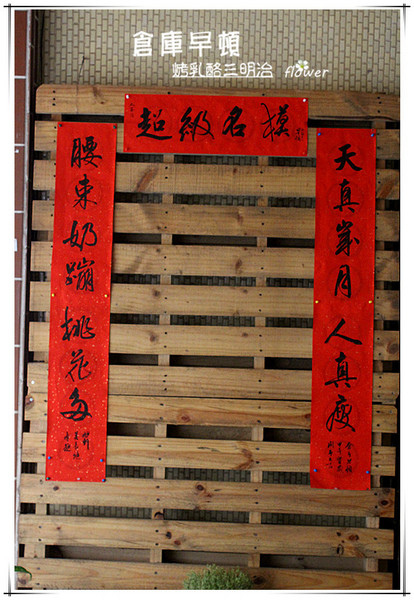 倉庫早頓
烤乳酪三明治 flower
超級名模
天真歲月人真瘦
腰束奶蹦桃花多